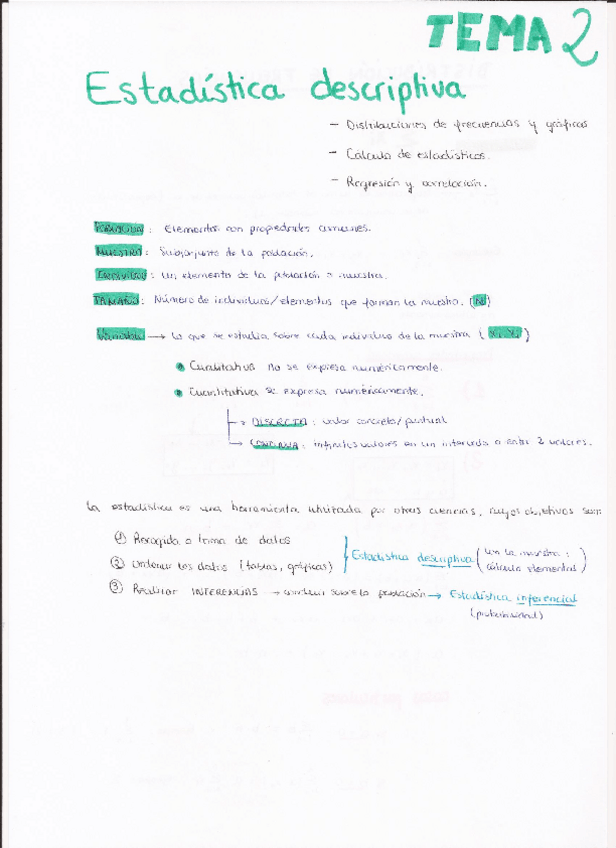 TEMA 2
Estadística descriptiva
- Distribuciones de frecuencias y gráficas
- Cálculo de estadísticos.
- Regresión y correlación.
POBLACIÓN: Elementos con propiedades comunes.
MUESTRA: Subconjunto de la población.
INDIVIDUO: Un elemento de la población o muestra.
TAMAÑO: Número de individuos/elementos que forman la muestra. (N)
Variable → Lo que se estudia sobre cada individuo de la muestra (
Cualitativa no se expresa numéricamente.
Cuantitativa se expresa numéricamente.
→ DISCRETA: valor concreto/puntual
→ CONTINUA: infinitos valores en un intervalo o entre 2 valores.
La estadística es una herramienta utilizada por otras ciencias, cuyos objetivos son:
① Recogida o toma de datos
② Ordenar los datos (tablas, gráficas)
Estadística descriptiva (en la muestra: cálculo elemental)
③ Realizar INFERENCIAS → concluir sobre la población → Estadística inferencial
(probabilidad)